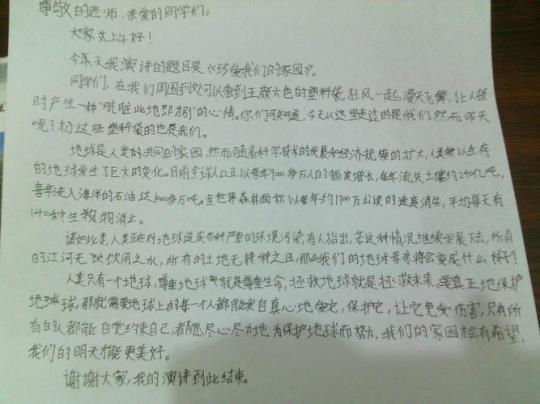 尊敬的老师、亲爱的同学们:
大家上午好!
今天我演讲的题目是《珍爱我们的家园》。
同学们,在我们周围到处可以看到五颜六色的塑料袋,狂风一起,漫天飞舞,让人顿
时产生一种"肮脏此地即别"的心情。你们可知道,今天从这里走过的是我们,然而昨天
呢?扔这些塑料袋的也是我们。
地球是人类的共同的家园,然而随着科学技术的发展和经济规模的扩大,人类赖以生存
的地球发生了巨大的变化。目前全球人口正以每年900多万人的幅度增长,每年流失土壤约240亿吨,
每年流入海洋的石油达1000多万吨。全世界森林面积以每年约1700万公顷的速度消失,平均每天有
140种生物消亡。
诸如此类,人类正在对地球造成各种严重的环境污染,有人指出,若这种情况继续发展下去,所有
的江河无可饮用之水,所有的土地无耕种之田,那么我们的地球母亲将会变成什么样子?
人类只有一个地球,尊重地球就是尊重生命,拯救地球就是拯救未来,要真正地保护
地球,那就需要地球上的每一个人都能发自真心地爱它,保护它,让它免受伤害,只有所
有的人都能自觉约束自己,都愿尽心尽力地为保护地球而努力,我们的家园才会有希望,
我们的明天才能更美好。
谢谢大家,我的演讲到此结束。